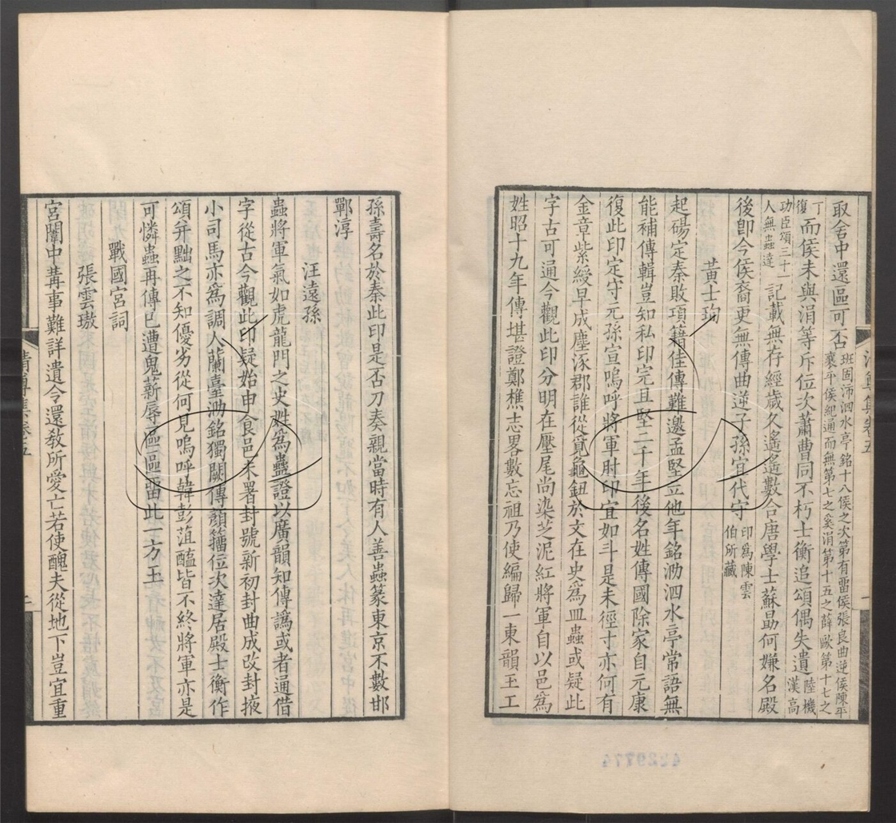 取舍中還區可否班固沛泗水亭銘十八侯之次第有留侯張良曲逆侯陳平
襄平侯紀通而無第七之奚涓第十五之薛歐第十七之
丁復而侯未與涓等斥位次蕭曹同不朽士衡追頌偶失遺陸機漢高
功臣頌三十一人無蟲達記載無存經歲久遙遙數合唐學士蘇勗何嫌名殿
後卽今侯裔更無傳曲逆子孫宜代守印為陳雲伯所藏
黃士珣
起碭定秦敗項籍佳傳難邀孟堅立他年銘泐泗水亭常語無
能補傳輯豈如私印完且堅二千年後名姓傳國除家自元康
復此印定守元孫宣嗚呼將軍肘印宜如斗是未徑寸亦何有
金章紫綬早成塵涿郡誰從覓龜鈕於文在史為皿蟲或疑此
字古可通今觀此印分明在壓尾尚染芝泥紅將軍自以邑為
姓昭十九年傳堪證鄭樵志畧數忘祖乃使編歸一東韻王工
孫壽名於秦此印是否刀奏親當時有人善蟲篆東京不數邯
鄲淳
汪遠孫
蟲將軍氣如虎龍門之史姓為蠱證以廣韻知傳譌或者通借
字從古今觀此印疑始申食邑未署封號新初封曲成改封掖
小司馬亦為調人蘭臺泐銘獨闕傳顏籀位次達居殿士衡作
頌并黜之不知優劣從何見嗚呼韓彭菹醢皆不終將軍亦是
可憐蟲再傳已遭鬼薪辱區區留此一方玉
戰國宮詞
張雲璈
宮闈中冓事難詳遺令還教所愛亡若使醜夫從地下豈宜重
清尊集卷五